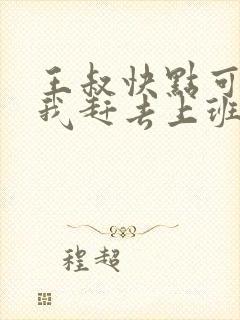 王叔快點可
我赶去上班
程超